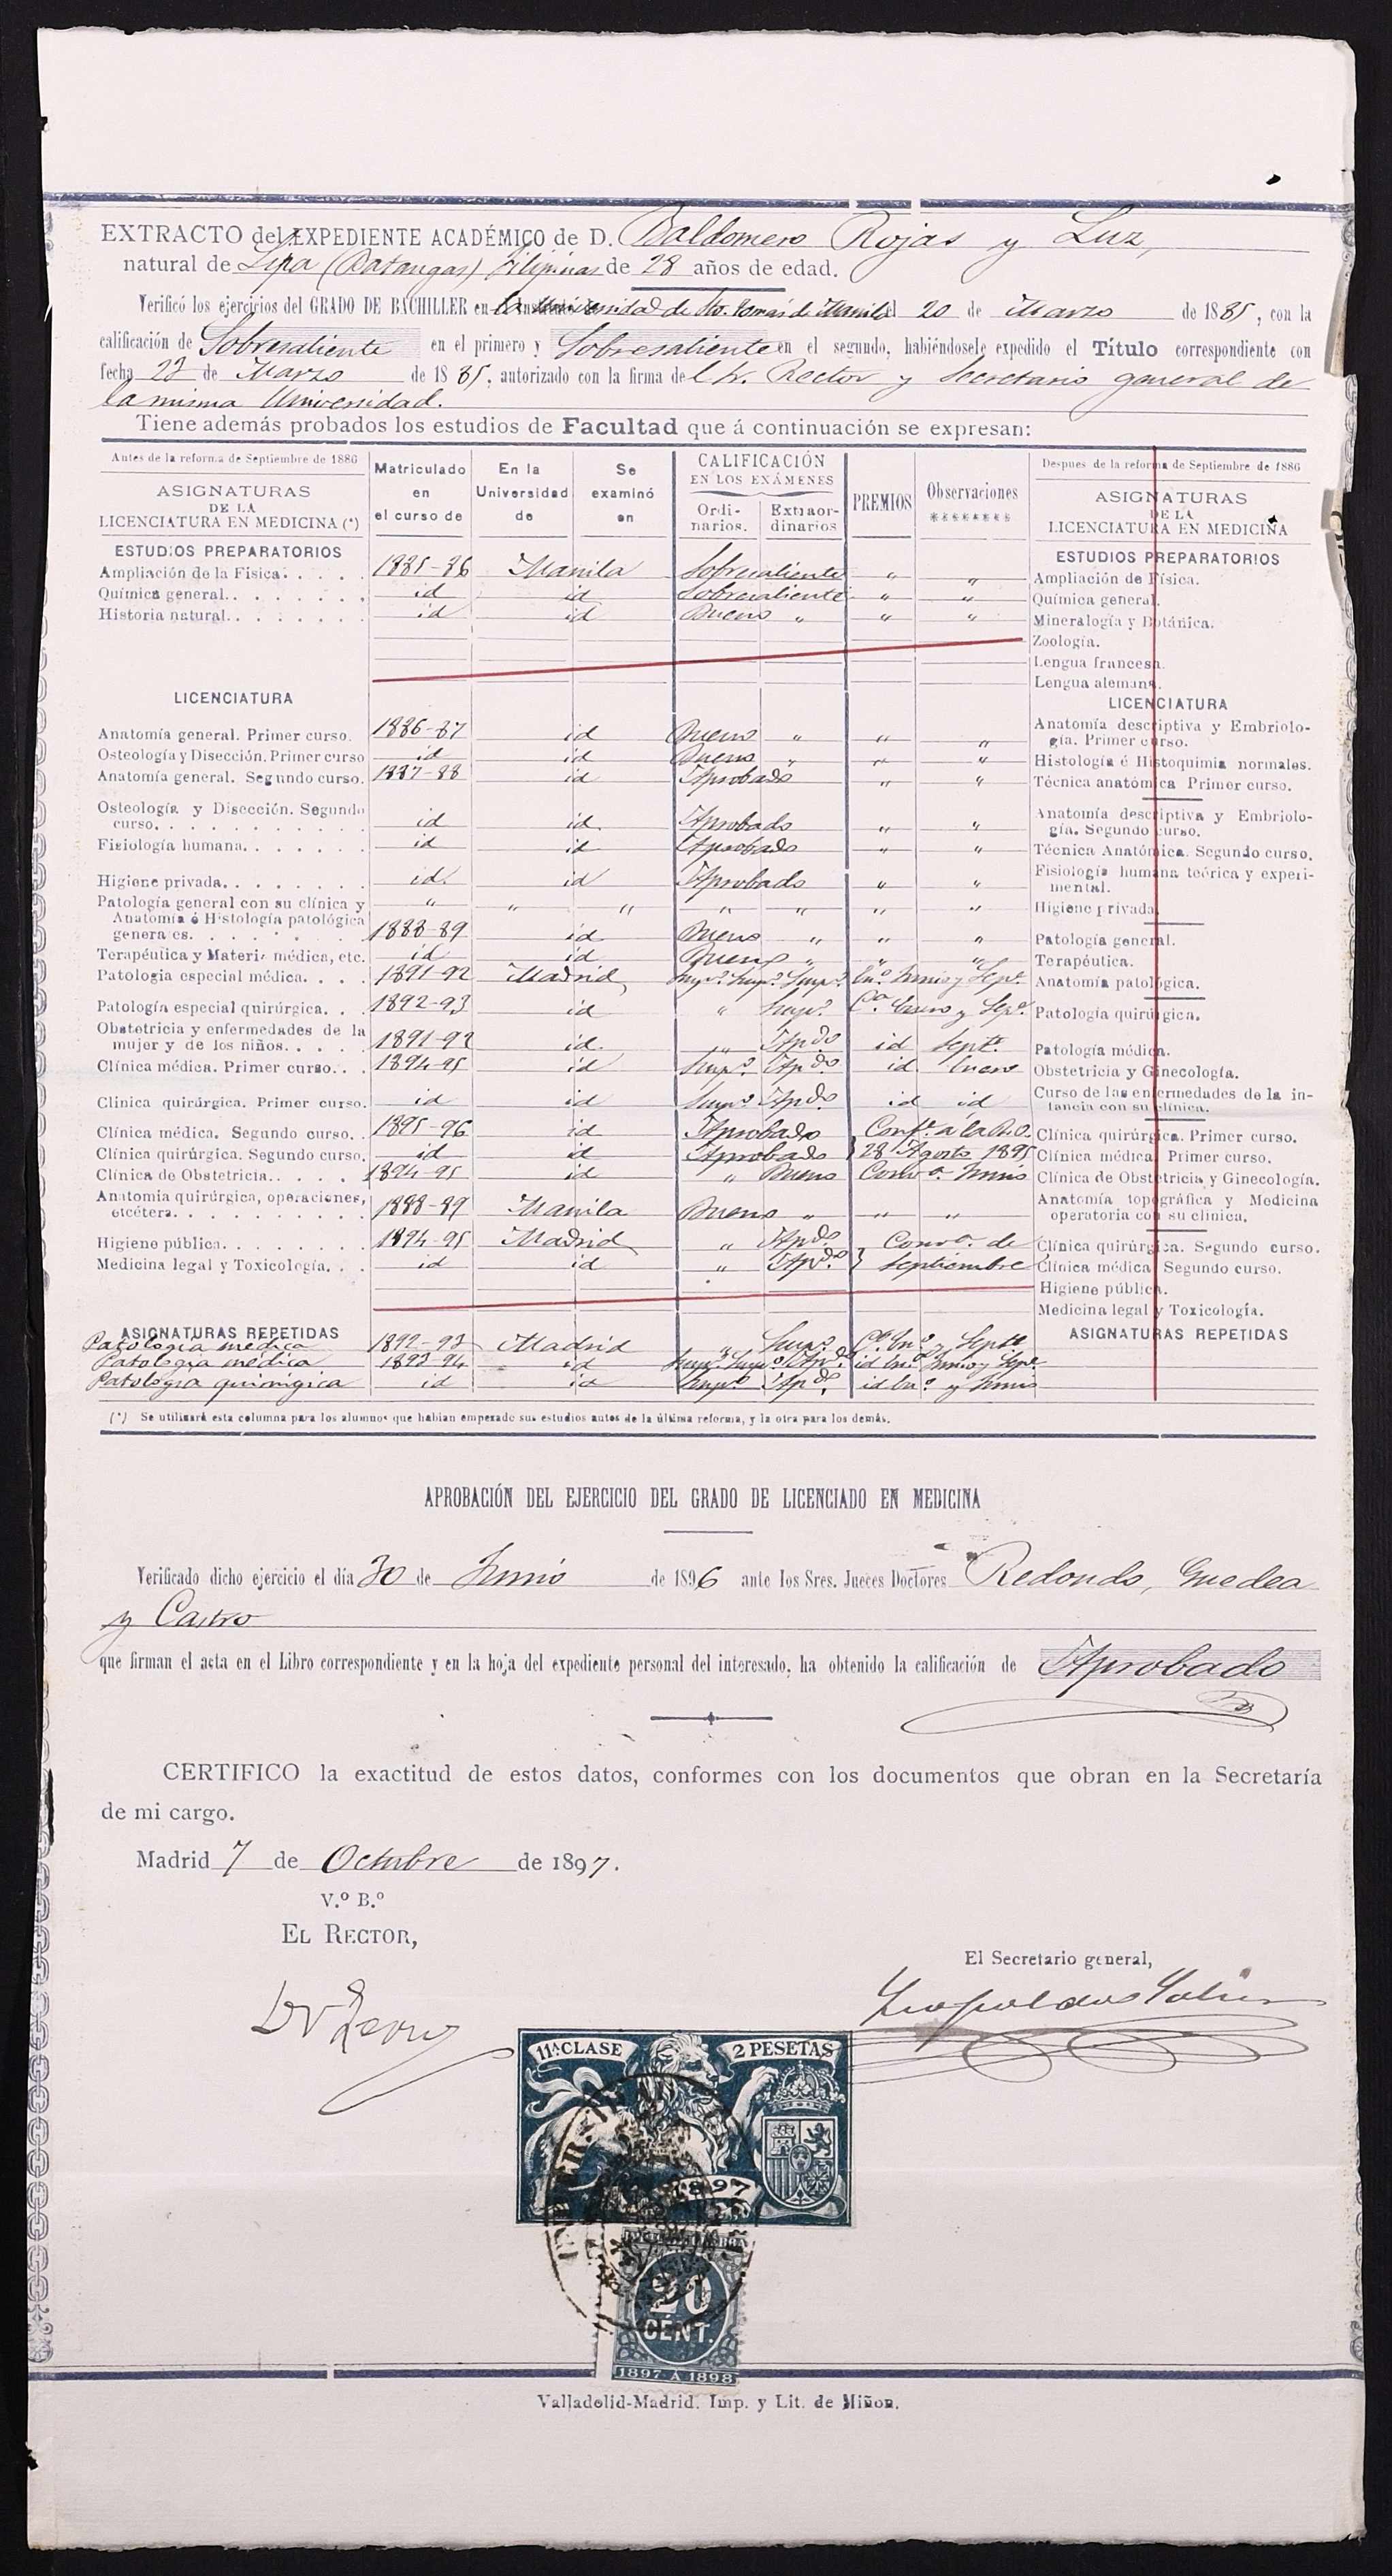 EXTRACTO del EXPEDIENTE ACADÉMICO de D. Baldomero Rojas y Luz,
natural de Lipa (Batangas) Filipinas de 28 años de edad.
Verificó los ejercicios del GRADO DE BACHILLER en la Universidad de Sto. Tomás de Manila el 20 de Marzo de 1885, con la
calificación de Sobresaliente en el primero y Sobresaliente en el segundo, habiéndosele expedido el Título correspondiente con
fecha 23 de Marzo de 1885, autorizado con la firma del Sr. Rector y Secretario general de
la misma Universidad.
Tiene además probados los estudios de Facultad que á continuación se expresan:
Antes de la reforma de Septiembre de 1886
ASIGNATURAS
DE LA
LICENCIATURA EN MEDICINA (*)
Matriculado en el curso de
En la Universidad de
Se examinó en
CALIFICACIÓN
EN LOS EXÁMENES
Ordinarios.
Extraordinarios
PREMIOS
Observaciones
********
Despues de la reforma de Septiembre de 1886
ASIGNATURAS
DE LA
LICENCIATURA EN MEDICINA
ESTUDIOS PREPARATORIOS ESTUDIOS PREPARATORIOS
Ampliación de la Física. . . . . 1885-86 Manila Sobresaliente " " Ampliación de Física.
Química general. . . . . . . . id id Sobresaliente " " Química general.
Historia natural. . . . . . . . id id Bueno " " " Mineralogía y Botánica.
Zoología.
Lengua francesa.
Lengua alemana.
LICENCIATURA LICENCIATURA
Anatomía general. Primer curso. 1886-87 id Bueno " " " Anatomía descriptiva y Embriología. Primer curso.
Osteología y Disección. Primer curso id id Bueno " " " Histología é Histoquimia normales.
Anatomía general. Segundo curso. 1887-88 id Aprobado " " Técnica anatómica Primer curso.
Osteología y Disección. Segundo curso. . . . . . . . . . . id id Aprobado " " Anatomía descriptiva y Embriología. Segundo curso.
Fisiología humana. . . . . . . id id Aprobado " " Técnica Anatómica. Segundo curso.
Higiene privada. . . . . . . . id. id Aprobado " " Fisiología humana teórica y experimental.
Patología general con su clínica y " " " " " " " Higiene privada
Anatomía é Histología patológica generales. . . . . . . . 1888-89 id Bueno " " " Patología general.
Terapéutica y Materia médica, etc. id id Bueno " " " Terapéutica.
Patologia especial médica. . . . 1891-92 Madrid Susp.º Susp.º Susp.º En.º Junio y Sept.e Anatomía patológica.
Patología especial quirúrgica. . . 1892-93 id " Susp.º C.a Enero y Sep.e Patología quirúrgica.
Obstetricia y enfermedades de la mujer y de los niños. . . . . 1891-92 id. " Ap.do id Sept.e Patología médica.
Clínica médica. Primer curso. . . 1894-95 id Susp.º Ap.do id Enero Obstetricia y Ginecología.
Clinica quirúrgica. Primer curso. id id Susp.º Ap.do id id Curso de las enfermedades de la infancia con su clínica.
Clínica médica. Segundo curso. . 1895-96 id Aprobado Conf.e á la R.O. Clínica quirúrgica. Primer curso.
Clínica quirúrgica. Segundo curso. id id Aprobado } 28 Agosto 1895 Clínica médica. Primer curso.
Clínica de Obstetricia. . . . . 1894-95 id " Bueno Conv.a Junio Clínica de Obstetricia y Ginecología.
Anatomia quirúrgica, operaciones, etcétera. . . . . . . . . . 1888-89 Manila Bueno " " " Anatomía topográfica y Medicina operatoria con su clínica.
Higiene pública. . . . . . . . 1894-95 Madrid " Ap.do Conv.a de Clínica quirúrgica. Segundo curso.
Medicina legal y Toxicología. . . id id " Ap.do } Septiembre Clínica médica Segundo curso.
Higiene pública.
Medicina legal y Toxicología.
ASIGNATURAS REPETIDAS ASIGNATURAS REPETIDAS
Patología médica 1892-93 Madrid " Susp.º C.a En.º y Sept.e
Patología médica 1893-94 id Susp.º Susp.º Ap.do id En.º Junio y Sep.e
Patología quirúrgica id id Susp.º Ap.do id En.º y Junio
(*) Se utilizará esta columna para los alumnos que habían empezado sus estudios antes de la última reforma, y la otra para los demás.
APROBACIÓN DEL EJERCICIO DEL GRADO DE LICENCIADO EN MEDICINA
Verificado dicho ejercicio el día 30 de Junio de 1896 ante los Sres. Jueces Doctores Redondo, Guedea
y Castro
que firman el acta en el Libro correspondiente y en la hoja del expediente personal del interesado, ha obtenido la calificación de Aprobado
CERTIFICO la exactitud de estos datos, conformes con los documentos que obran en la Secretaría
de mi cargo.
Madrid 7 de Octubre de 1897.
V.º B.º
EL RECTOR,
El Secretario general,
Leopoldo Solier
11ª CLASE 2 PESETAS
1897
20
CENT.
1897 A 1898
Valladolid-Madrid. Imp. y Lit. de Miñon.